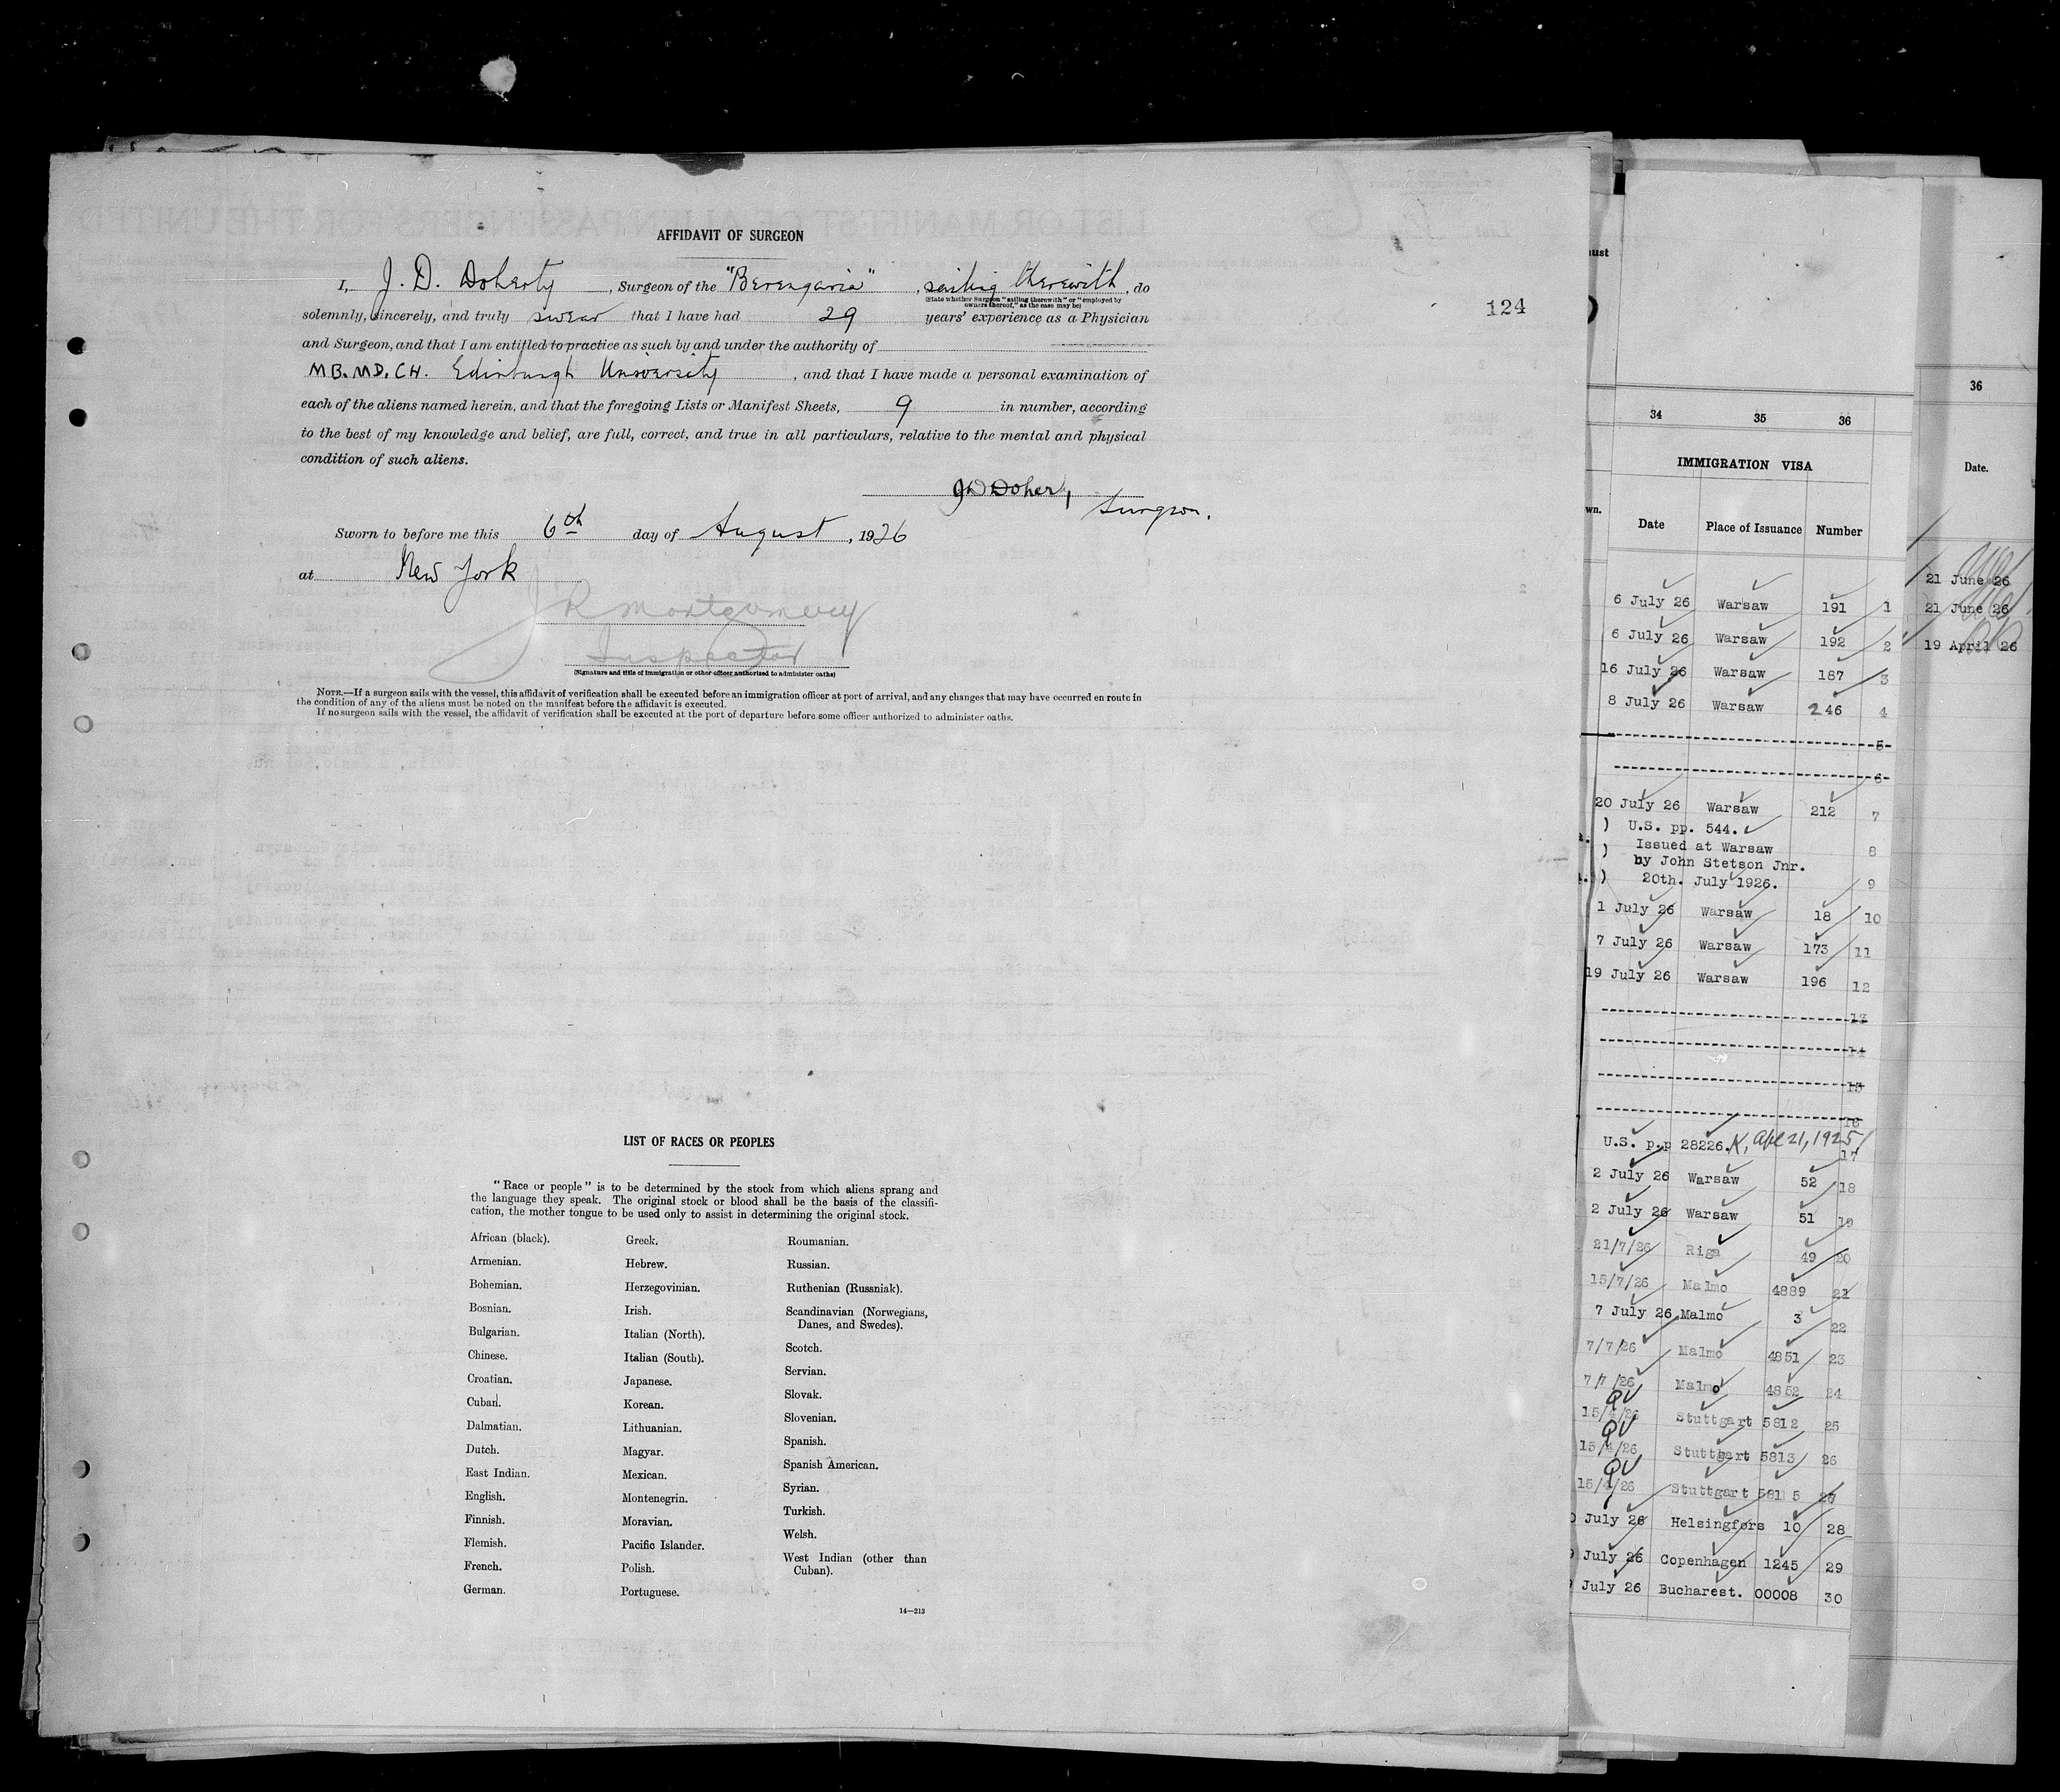 AFFIDAVIT OF SURGEON
I, J. D. Doherty, Surgeon of the "Berengaria", sailing therewith, do
(State whether Surgeon "sailing therewith" or "employed by
owners thereof," as the case may be)
solemnly, sincerely, and truly swear that I have had 29 years' experience as a Physician
and Surgeon, and that I am entitled to practice as such by and under the authority of
MB. MD. CH. Edinburgh University, and that I have made a personal examination of
each of the aliens named herein, and that the foregoing Lists or Manifest Sheets, 9 in number, according
to the best of my knowledge and belief, are full, correct, and true in all particulars, relative to the mental and physical
condition of such aliens.
Surgeon.
Sworn to before me this 6th day of August, 1926
at New York
J R Montgomery
Inspector
(Signature and title of immigration or other officer authorized to administer oaths)
NOTE.—If a surgeon sails with the vessel, this affidavit of verification shall be executed before an immigration officer at port of arrival, and any changes that may have occurred en route in
the condition of any of the aliens must be noted on the manifest before the affidavit is executed.
If no surgeon sails with the vessel, the affidavit of verification shall be executed at the port of departure before some officer authorized to administer oaths.
124
LIST OF RACES OR PEOPLES
"Race or people" is to be determined by the stock from which aliens sprang and
the language they speak. The original stock or blood shall be the basis of the classifi-
cation, the mother tongue to be used only to assist in determining the original stock.
African (black).
Armenian.
Bohemian.
Bosnian.
Bulgarian.
Chinese.
Croatian.
Cuban.
Dalmatian.
Dutch.
East Indian.
English.
Finnish.
Flemish.
French.
German.
Greek.
Hebrew.
Herzegovinian.
Irish.
Italian (North).
Italian (South).
Japanese.
Korean.
Lithuanian.
Magyar.
Mexican.
Montenegrin.
Moravian.
Pacific Islander.
Polish.
Portuguese.
Roumanian.
Russian.
Ruthenian (Russniak).
Scandinavian (Norwegians,
Danes, and Swedes).
Scotch.
Servian.
Slovak.
Slovenian.
Spanish.
Spanish American.
Syrian.
Turkish.
Welsh.
West Indian (other than
Cuban).
14—213
34 35 36
IMMIGRATION VISA
Date Place of Issuance Number
6 July 26 Warsaw 191 1
6 July 26 Warsaw 192 2
16 July 26 Warsaw 187 3
8 July 26 Warsaw 246 4
5
6
20 July 26 Warsaw 212 7
) U.S. pp. 544.
) Issued at Warsaw 8
by John Stetson Jnr.
) 20th. July 1926. 9
1 July 26 Warsaw 18 10
7 July 26 Warsaw 173 11
19 July 26 Warsaw 196 12
13
14
15
16
U.S. p.p 28226. Apl 21, 1925 17
2 July 26 Warsaw 52 18
2 July 26 Warsaw 51 19
21/7/26 Riga 49 20
15/7/26 Malmo 4889 21
7 July 26 Malmo 3 22
7/7/26 Malmo 4851 23
7/7/26 Malmo 4852 24
QV
15/4/26 Stuttgart 5812 25
QV
15/4/26 Stuttgart 5813 26
QV
15/4/26 Stuttgart 5815 27
July 26 Helsingfors 10 28
July 26 Copenhagen 1245 29
July 26 Bucharest. 00008 30
36
Date.
21 June 26
21 June 26
19 April 26